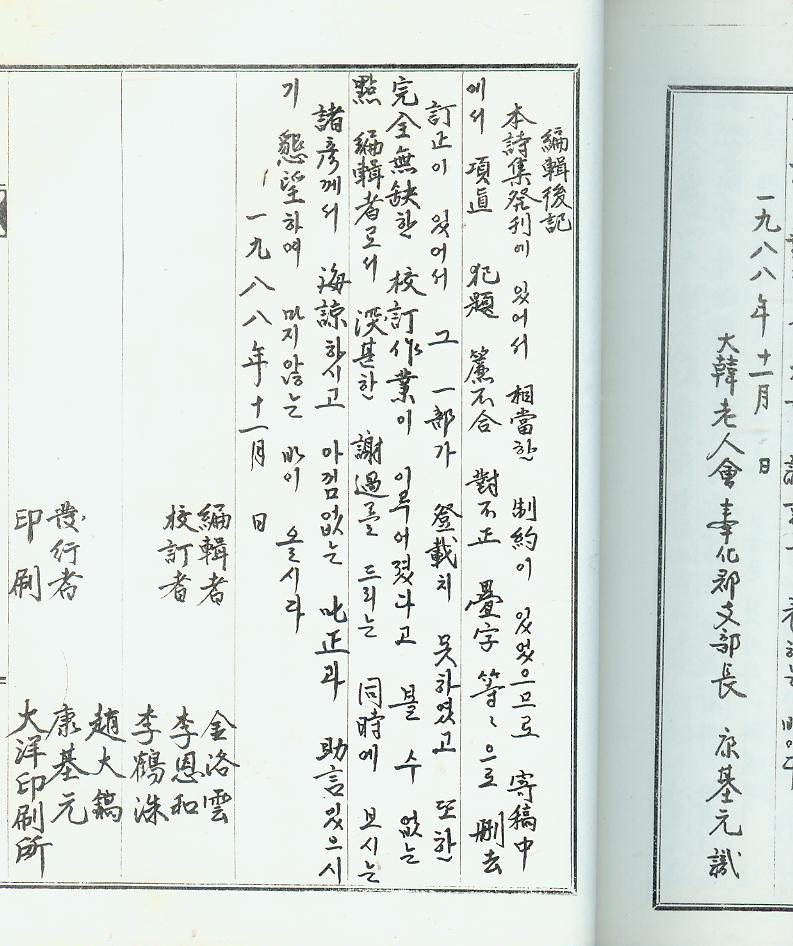 一九八八年 十一月 日
大韓老人會 奉化郡支部長 康基元 識
編輯後記
本詩集發刊에 있어서 相當한 制約이 있었으므로 寄稿中
에서 項眞 犯題 簾不合 對不正 疊字 等으로 刪去
訂正이 있어서 그 一部가 登載치 못하였고 또한
完全無缺한 校訂作業이 이루어졌다고 볼 수 없는
點 編輯者로서 深甚한 謝過를 드리는 同時에 보시는
諸彦께서 海諒하시고 아낌없는 叱正과 助言있으시
기 懇望하여 마지않는 바이 올시다
一九八八年 十一月 日
編輯者 金洛雲
校訂者 李恩和
李鶴洙
趙大鎬
發行者 康基元
印刷 大洋印刷所